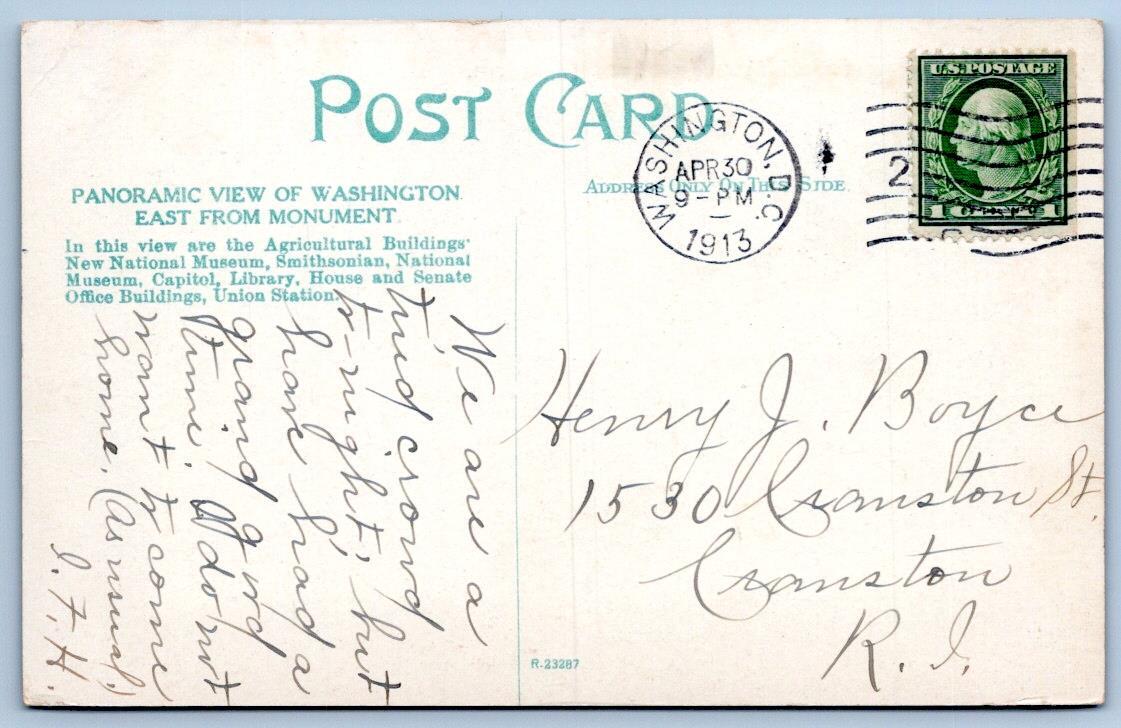 POST CARD
PANORAMIC VIEW OF WASHINGTON
EAST FROM MONUMENT.
In this view are the Agricultural Buildings
New National Museum, Smithsonian, National
Museum, Capitol, Library, House and Senate
Office Buildings, Union Station.
We are a
tired crowd
to-night, but
have had a
grand good
time. I do not
want to come
home. (As usual.)
I. F. H.
R-23287
ADDRESS ONLY ON THIS SIDE.
WASHINGTON, D.C.
APR 30
9-PM
1913
2
U.S. POSTAGE
1 1
Henry J. Boyce
1530 Cranston St.
Cranston
R. I.